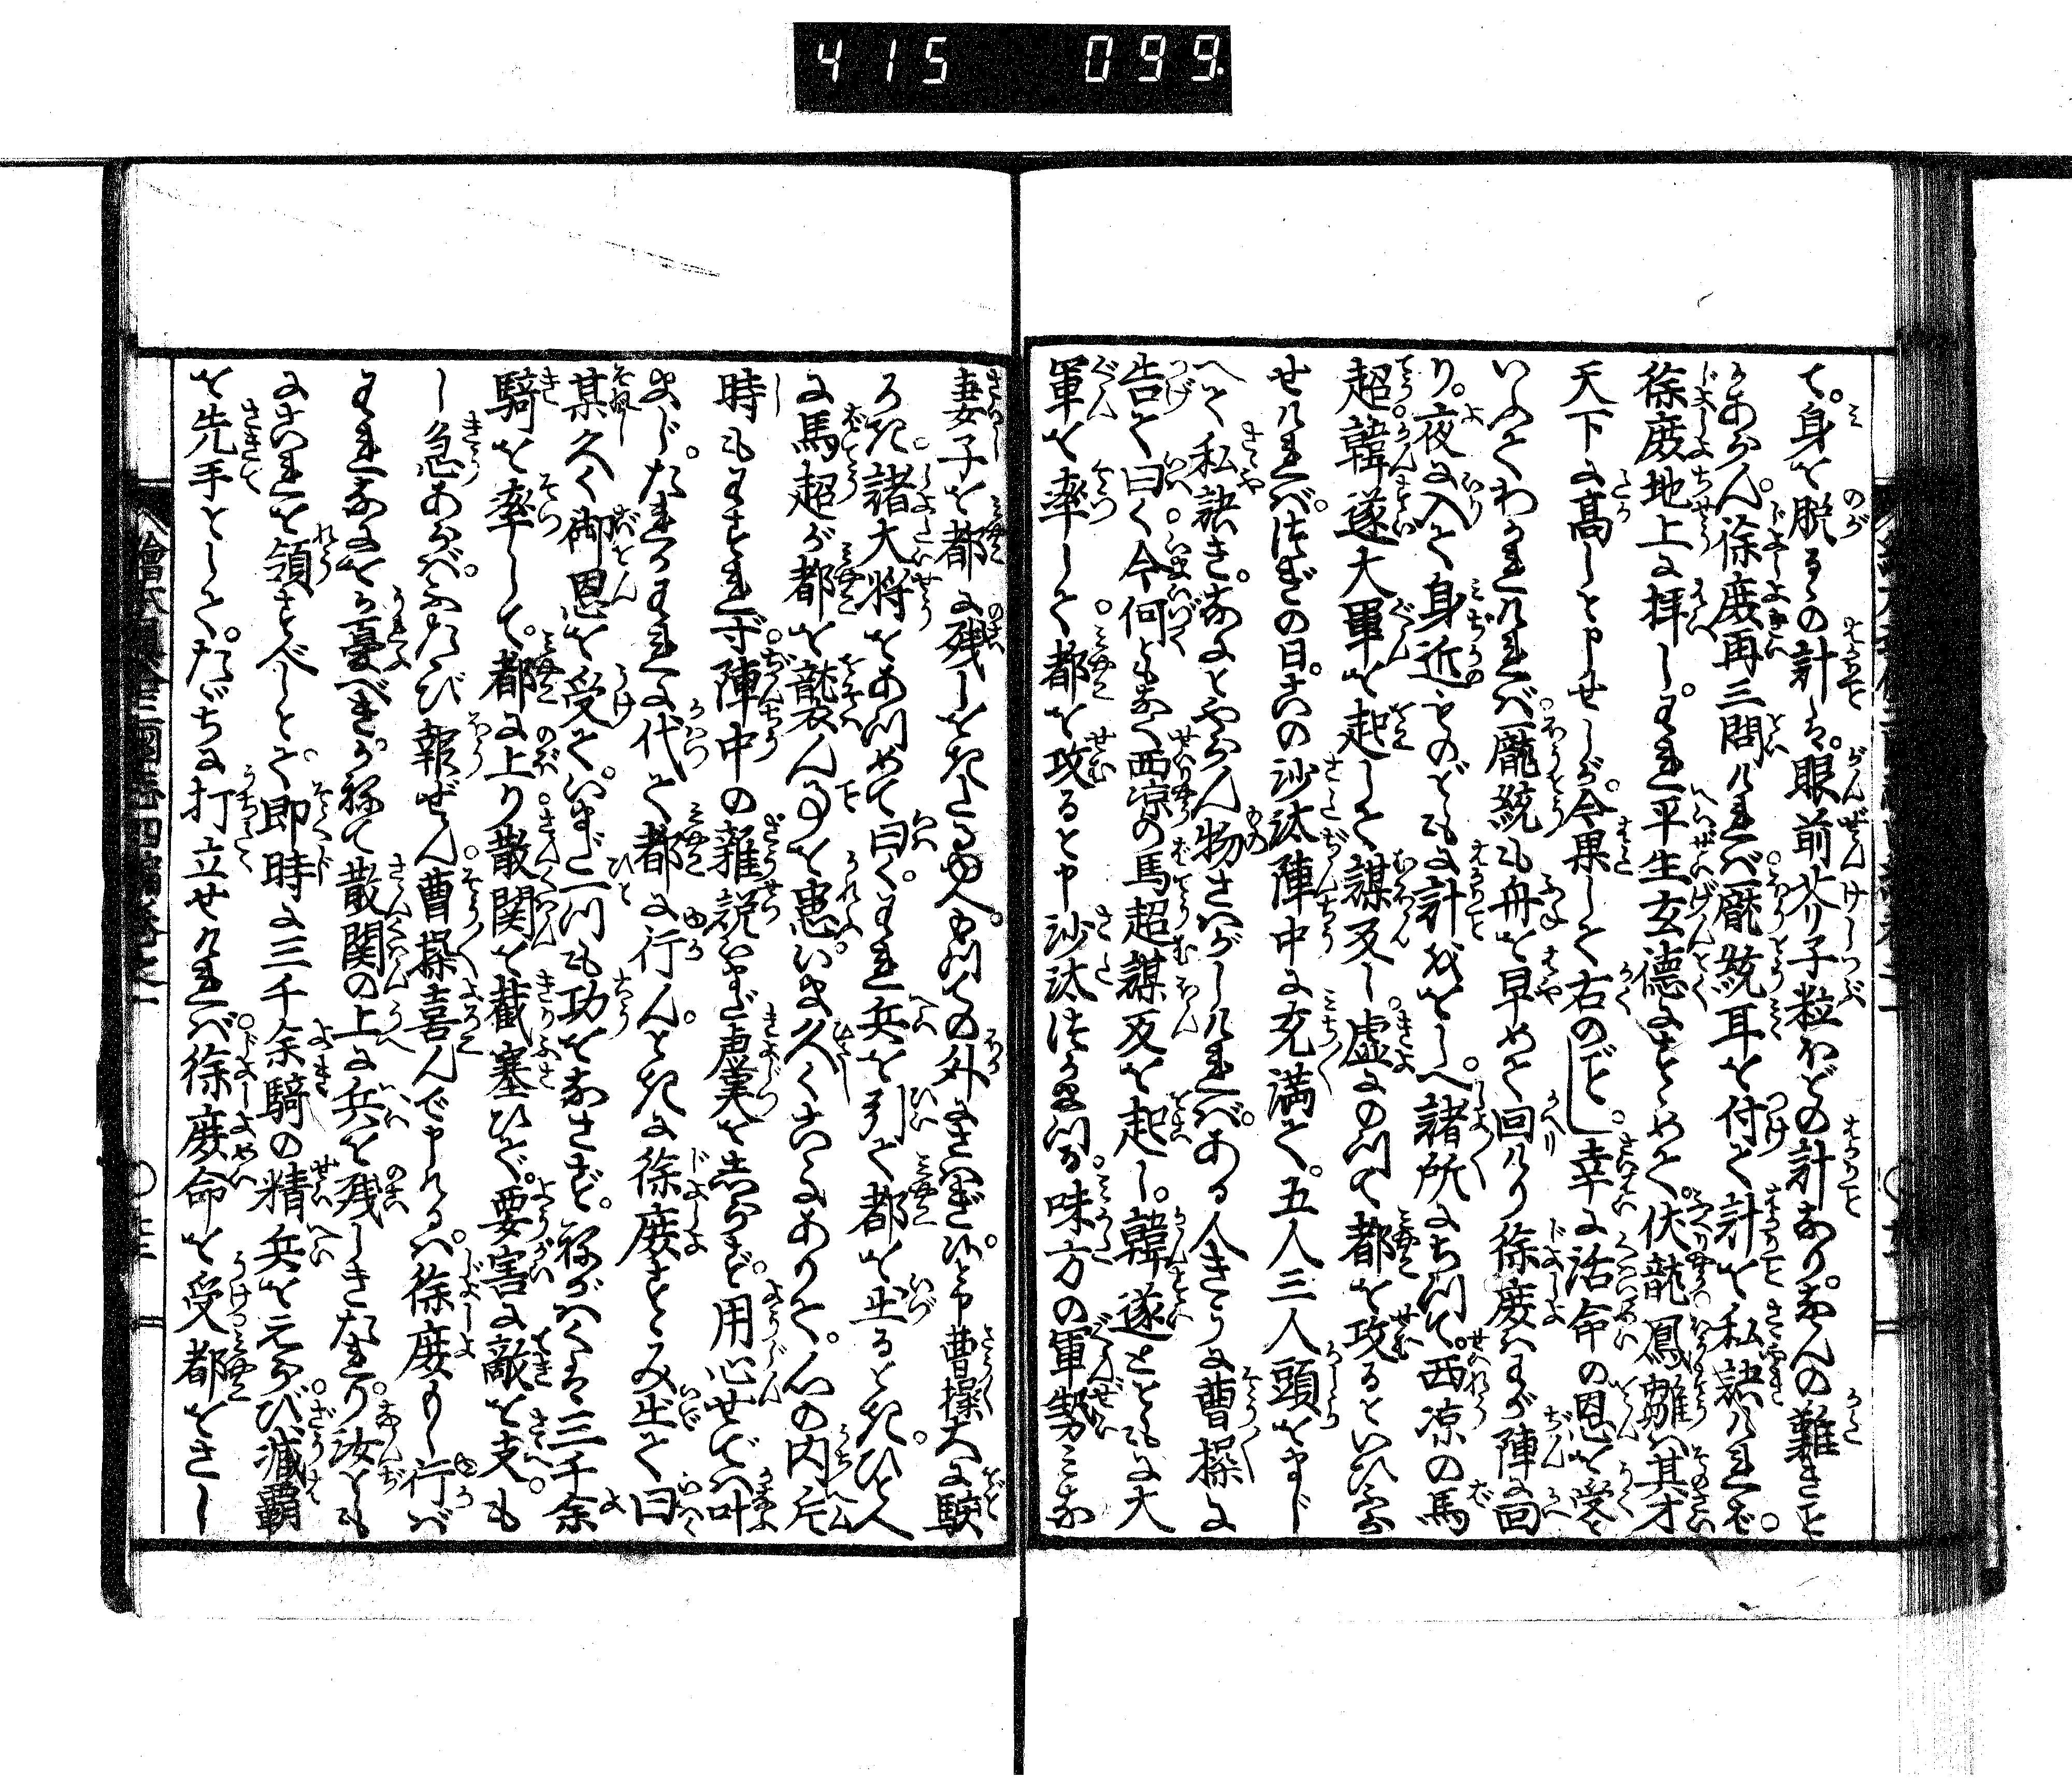 415 099.
て。身を脱るゝの計は。眼前芥子粒ほどの計あり。なんの難きこと
かあらん。徐庶再三問ければ。龐統耳を付て計を私語ければ。
徐庶地上に拝し。われ平生玄徳にすゝめて。伏龍鳳雛は其才
天下に高しと申せしが。今果して右のごとし。幸に活命の恩を受と
いふてわかれければ。龐統も舟を早めて回けり徐庶はわが陣に回
り。夜に入て身近ものどもに計ををしへ。諸所にちつて。西凉の馬
超。韓遂大軍を起して謀反し。虚にのつて都を攻るといひふら
せければ。つぎの日。この沙汰陣中に充満て。五人三人頭をまじ
へて私語き。なにとやらん物さはがしければ。ある人きうに曹操に
告て曰く。今何ともなく西凉の馬超謀反を起し。韓遂とともに大
軍を率して都を攻ると申沙汰つかまつる。味方の軍勢みな
妻子を都に残しをきたるゆへ。もつての外にさはぎ候と申曹操大に駭
ろき。諸大将をあつめて曰く。われ兵を引て都を出るとき。ひと人
に馬超が都を襲ん事を患。いま久くこゝにありて。心の内片
時もわすれず。陣中の雑説いまだ虚実をしらず。用心せでは叶
まじ。たれかわれに代て都に行ん。ときに徐庶すゝみ出て曰
某久く御恩を受て。いまだ一つも功をなさず。ねがはくは三千余
騎を率して。都に上り散関を截塞ひで。要害に敵を支。も
し急あらば。ふたゝび報ぜん曹操喜んで申けるは。徐庶もし行ば
われなにをか憂べき。かねて散関の上に兵を残しをきたれり。汝とも
にこれを領すべしとて。即時に三千余騎の精兵をえらび。滅覇
を先手として。たゞちに打立せければ。徐庶命を受都をさし